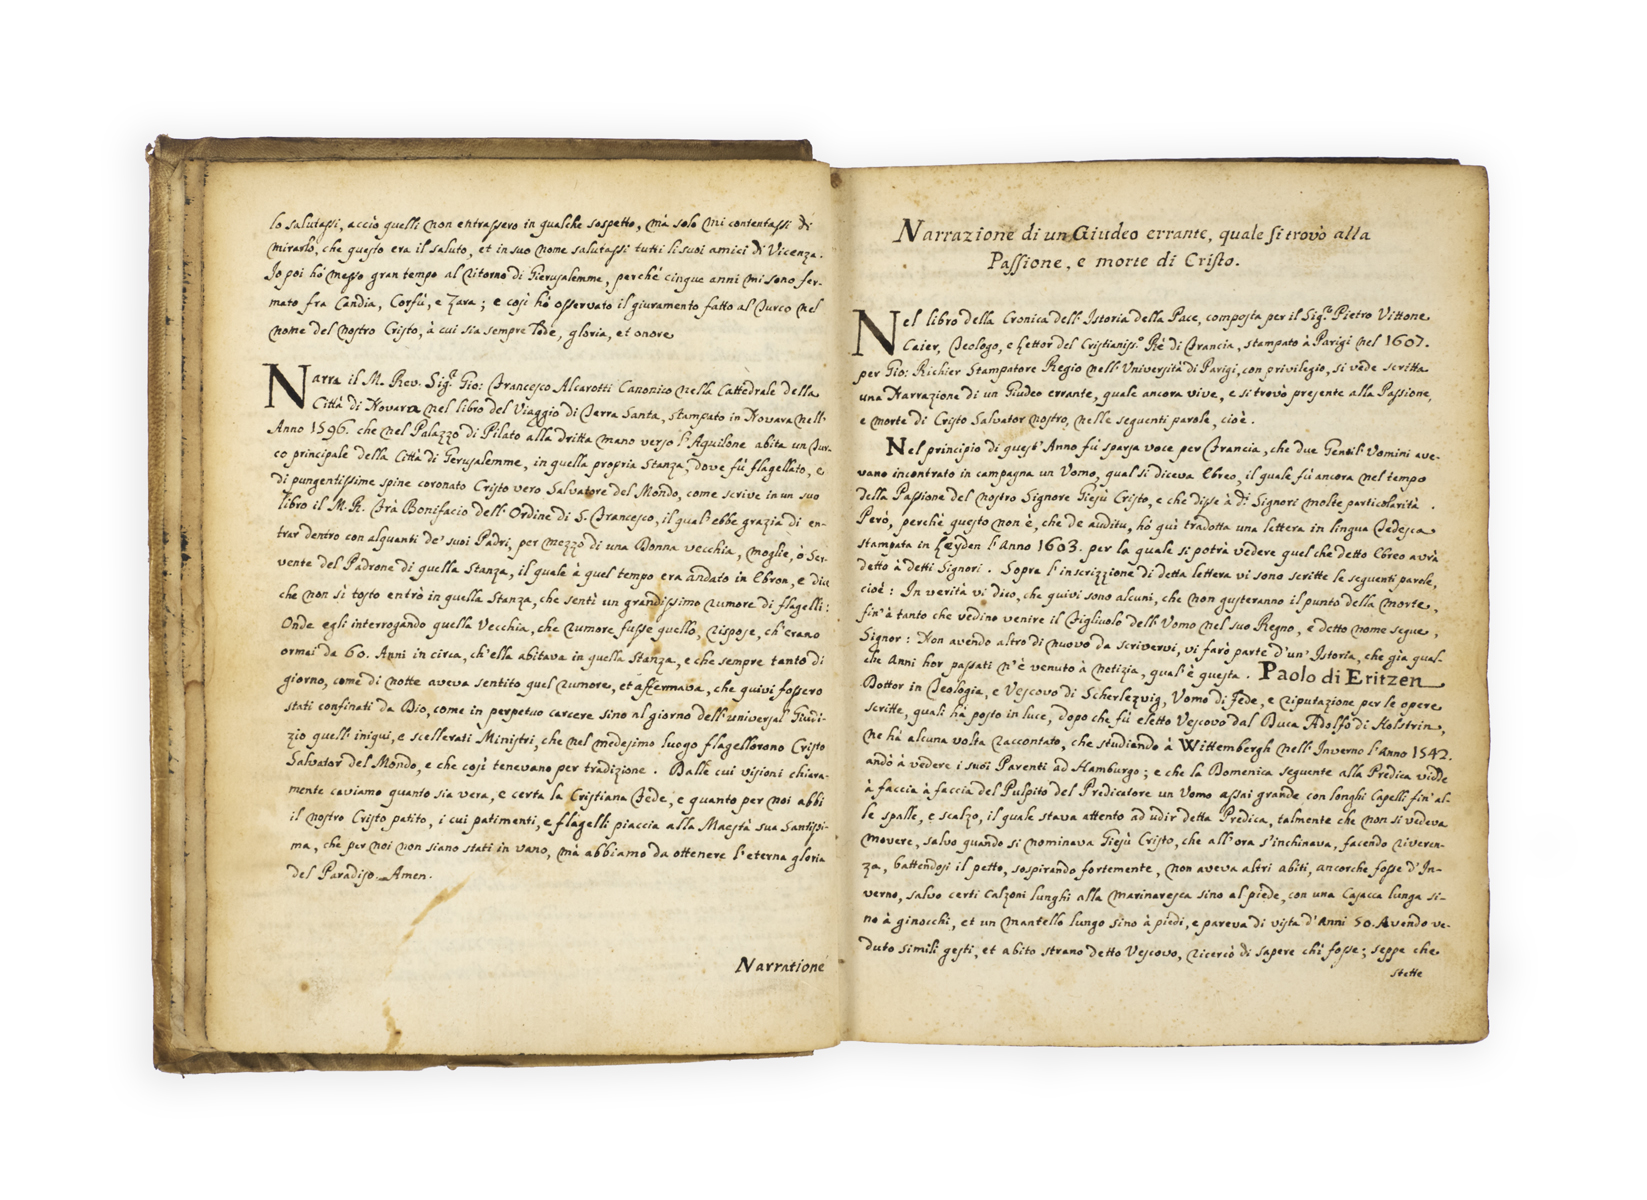 lo salutassi, acciò quelli non entrassero in qualche sospetto, mà solo mi contentassi di
mirarlo, che questo era il saluto, et in suo nome salutassi tutti li suoi amici di Vicenza.
Io poi hò messo gran tempo al ritorno di Gierusalemme, perché cinque anni mi sono fer-
mato fra Candia, Corfù, e Zara; e così hò osservato il giuramento fatto al Turco nel
nome del nostro Cristo, à cui sia sempre lode, gloria, et onore
Narra il M. Rev. Sig.r Gio: Francesco Alcarotti Canonico nella Cattedrale della
Città di Novara nel libro del Viaggio di Terra Santa, stampato in Novara nell'
Anno 1596. che nel Palazzo di Pilato alla dritta mano verso l'Aquilone abita un Tur-
co principale della Città di Gerusalemme, in quella propria Stanza, dove fù flagellato, e
di pungentissime spine coronato Cristo vero Salvatore del Mondo, come scrive in un suo
libro il M. R. Frà Bonifacio dell'Ordine di S. Francesco, il qual'ebbe grazia di en-
trar dentro con alquanti de' suoi Padri, per mezzo di una Donna vecchia, moglie, ò Ser-
vente del Padrone di quella Stanza, il quale à quel tempo era andato in Ebron, e dice
che non sì tosto entrò in quella Stanza, che sentì un grandissimo rumore di flagelli:
Onde egli interrogando quella Vecchia, che rumore fusse quello, rispose, ch'erano
ormai da 60. Anni in circa, ch'ella abitava in quella Stanza, e che sempre tanto di
giorno, come di notte aveva sentito quel rumore, et affermava, che quivi fossero
stati confinati da Dio, come in perpetuo carcere sino al giorno dell'universal Giudi-
zio quell'iniqui, e scellerati Ministri, che nel medesimo luogo flagellorono Cristo
Salvator del Mondo, e che così tenevano per tradizione. Dalle cui visioni chiara-
mente caviamo quanto sia vera, e certa la Cristiana Fede, e quanto per noi abbi
il nostro Cristo patito, i cui patimenti, e flagelli piaccia alla Maestà sua Santissi-
ma, che per noi non siano stati in vano, mà abbiamo da ottenere l'eterna gloria
del Paradiso. Amen.
Narratione
Narrazione di un Giudeo errante, quale si trovò alla
Passione, e morte di Cristo.
Nel libro della Cronica dell'Istoria della Pace, composta per il Sig.r Pietro Vittone
Caier, Teologo, e Lettor del Cristianiss.o Rè di Francia, stampato à Parigi nel 1607.
per Gio: Richier Stampatore Regio nell'Università di Parigi, con privilegio, si vede scritta
una Narrazione di un Giudeo errante, quale ancora vive, e si trovò presente alla Passione,
e morte di Cristo Salvator nostro, nelle seguenti parole, cioè.
Nel principio di quest'Anno fù sparsa voce per Francia, che due Gentil'Uomini ave-
vano incontrato in campagna un Uomo, qual si diceva Ebreo, il quale fù ancora nel tempo
della Passione del nostro Signore Giesù Cristo, e che disse à d.i Signori molte particolarità.
Però, perchè questo non è, che de auditu, hò quì tradotta una lettera in lingua Tedesca
stampata in Leyden l'Anno 1603. per la quale si potrà vedere quel che detto Ebreo avrà
detto à detti Signori. Sopra l'inscrizzione di detta lettera vi sono scritte le seguenti parole,
cioè: In verità vi dico, che quivi sono alcuni, che non gusteranno il punto della morte,
fin'à tanto che vedino venire il Figliuolo dell'Uomo nel suo Regno, e detto nome segue,
Signor: Non avendo altro di nuovo da scrivervi, vi farò parte d'un'Istoria, che già qual-
che Anni hor passati n'è venuto à notizia, qual'è questa. Paolo di Eritzen
Dottor in Teologia, e Vescovo di Scherlezvig, Uomo di fede, e riputazione per le opere
scritte, quali hà posto in luce, dopo che fù eletto Vescovo dal Duca Adolfo di Holstrin,
ne hà alcuna volta raccontato, che studiando à Wittembergh nell'Inverno l'Anno 1542.
andò à vedere i suoi Parenti ad Hamburgo; e che la Domenica seguente alla Predica vidde
à faccia à faccia del Pulpito del Predicatore un Uomo assai grande con longhi Capelli fin'al-
le spalle, e scalzo, il quale stava attento ad udir detta Predica, talmente che non si vedeva
movere, salvo quando si nominava Giesù Cristo, che all'ora s'inchinava, facendo riveren-
za, battendosi il petto, sospirando fortemente, non aveva altri abiti, ancorche fosse d'In-
verno, salvo certi Calzoni lunghi alla marinaresca sino al piede, con una Casacca lunga si-
no à ginocchi, et un mantello lungo sino à piedi, e pareva di vista d'Anni 50. Avendo ve-
duto simili gesti, et abito strano detto Vescovo, ricercò di sapere chi fosse; seppe che
stette